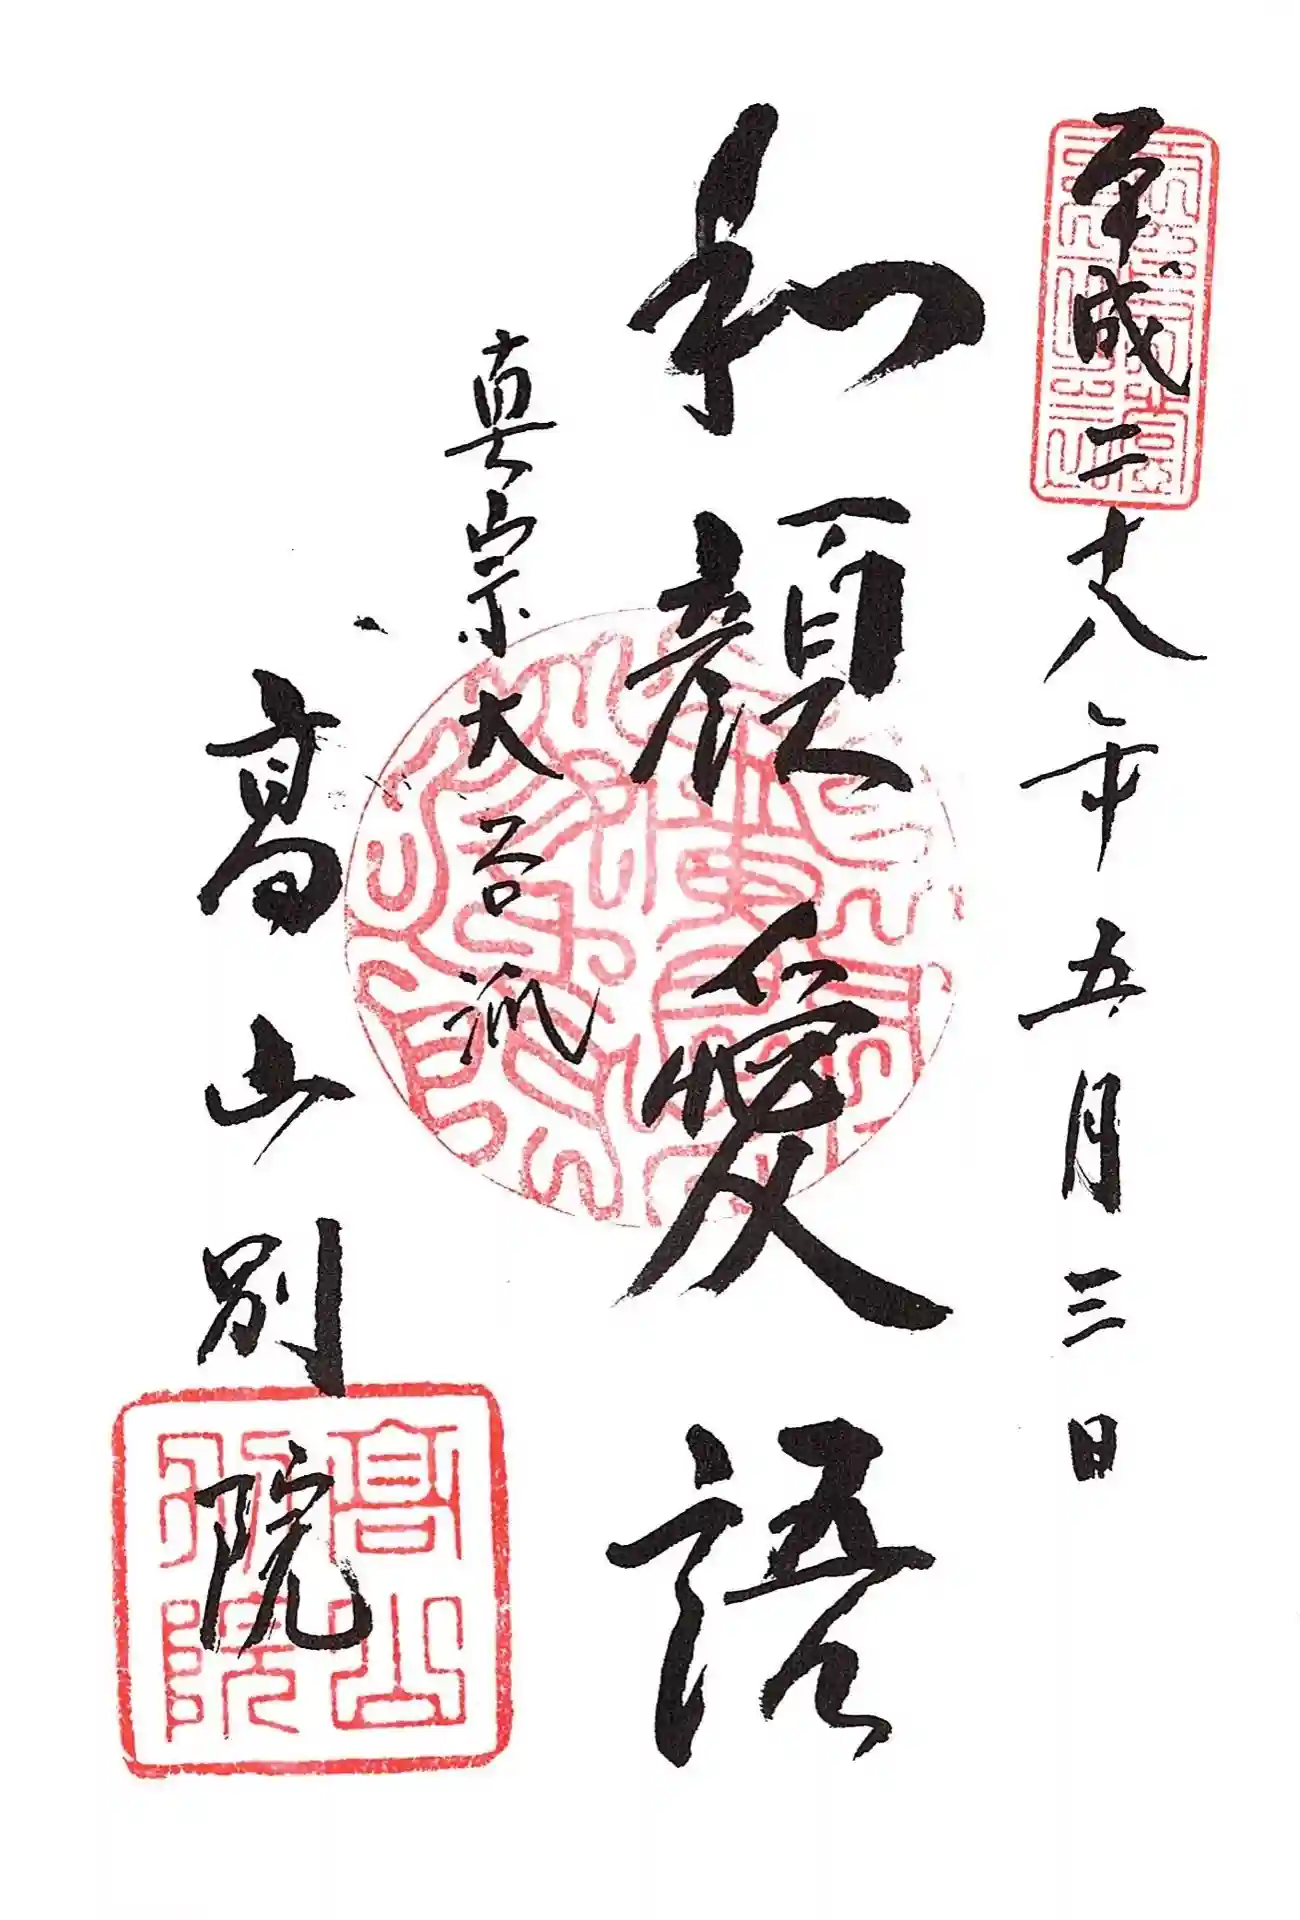 平成二十八年五月三日
和顔愛語
真宗大谷派
高山別院
高山別院